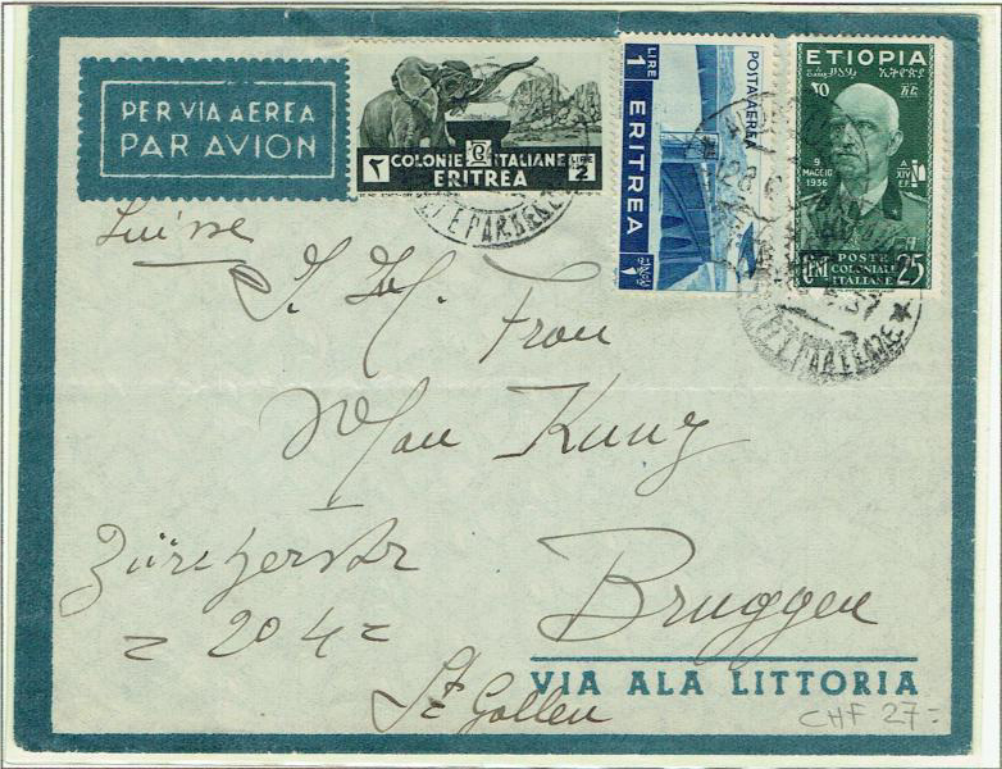 PER VIA AEREA
PAR AVION
٢ COLONIE ITALIANE LIRE 2
ERITREA
LIRE 1 ERITREA ١
POSTA AEREA
ETIOPIA
٢٥
9 MAGGIO 1936
A XIV E.F.
CENT POSTE COLONIALI ITALIANE 25
Suisse
Frau
Max Kung
Zürcherstr
= 204 =
Bruggen
VIA ALA LITTORIA
St Gallen
CHF 27.-